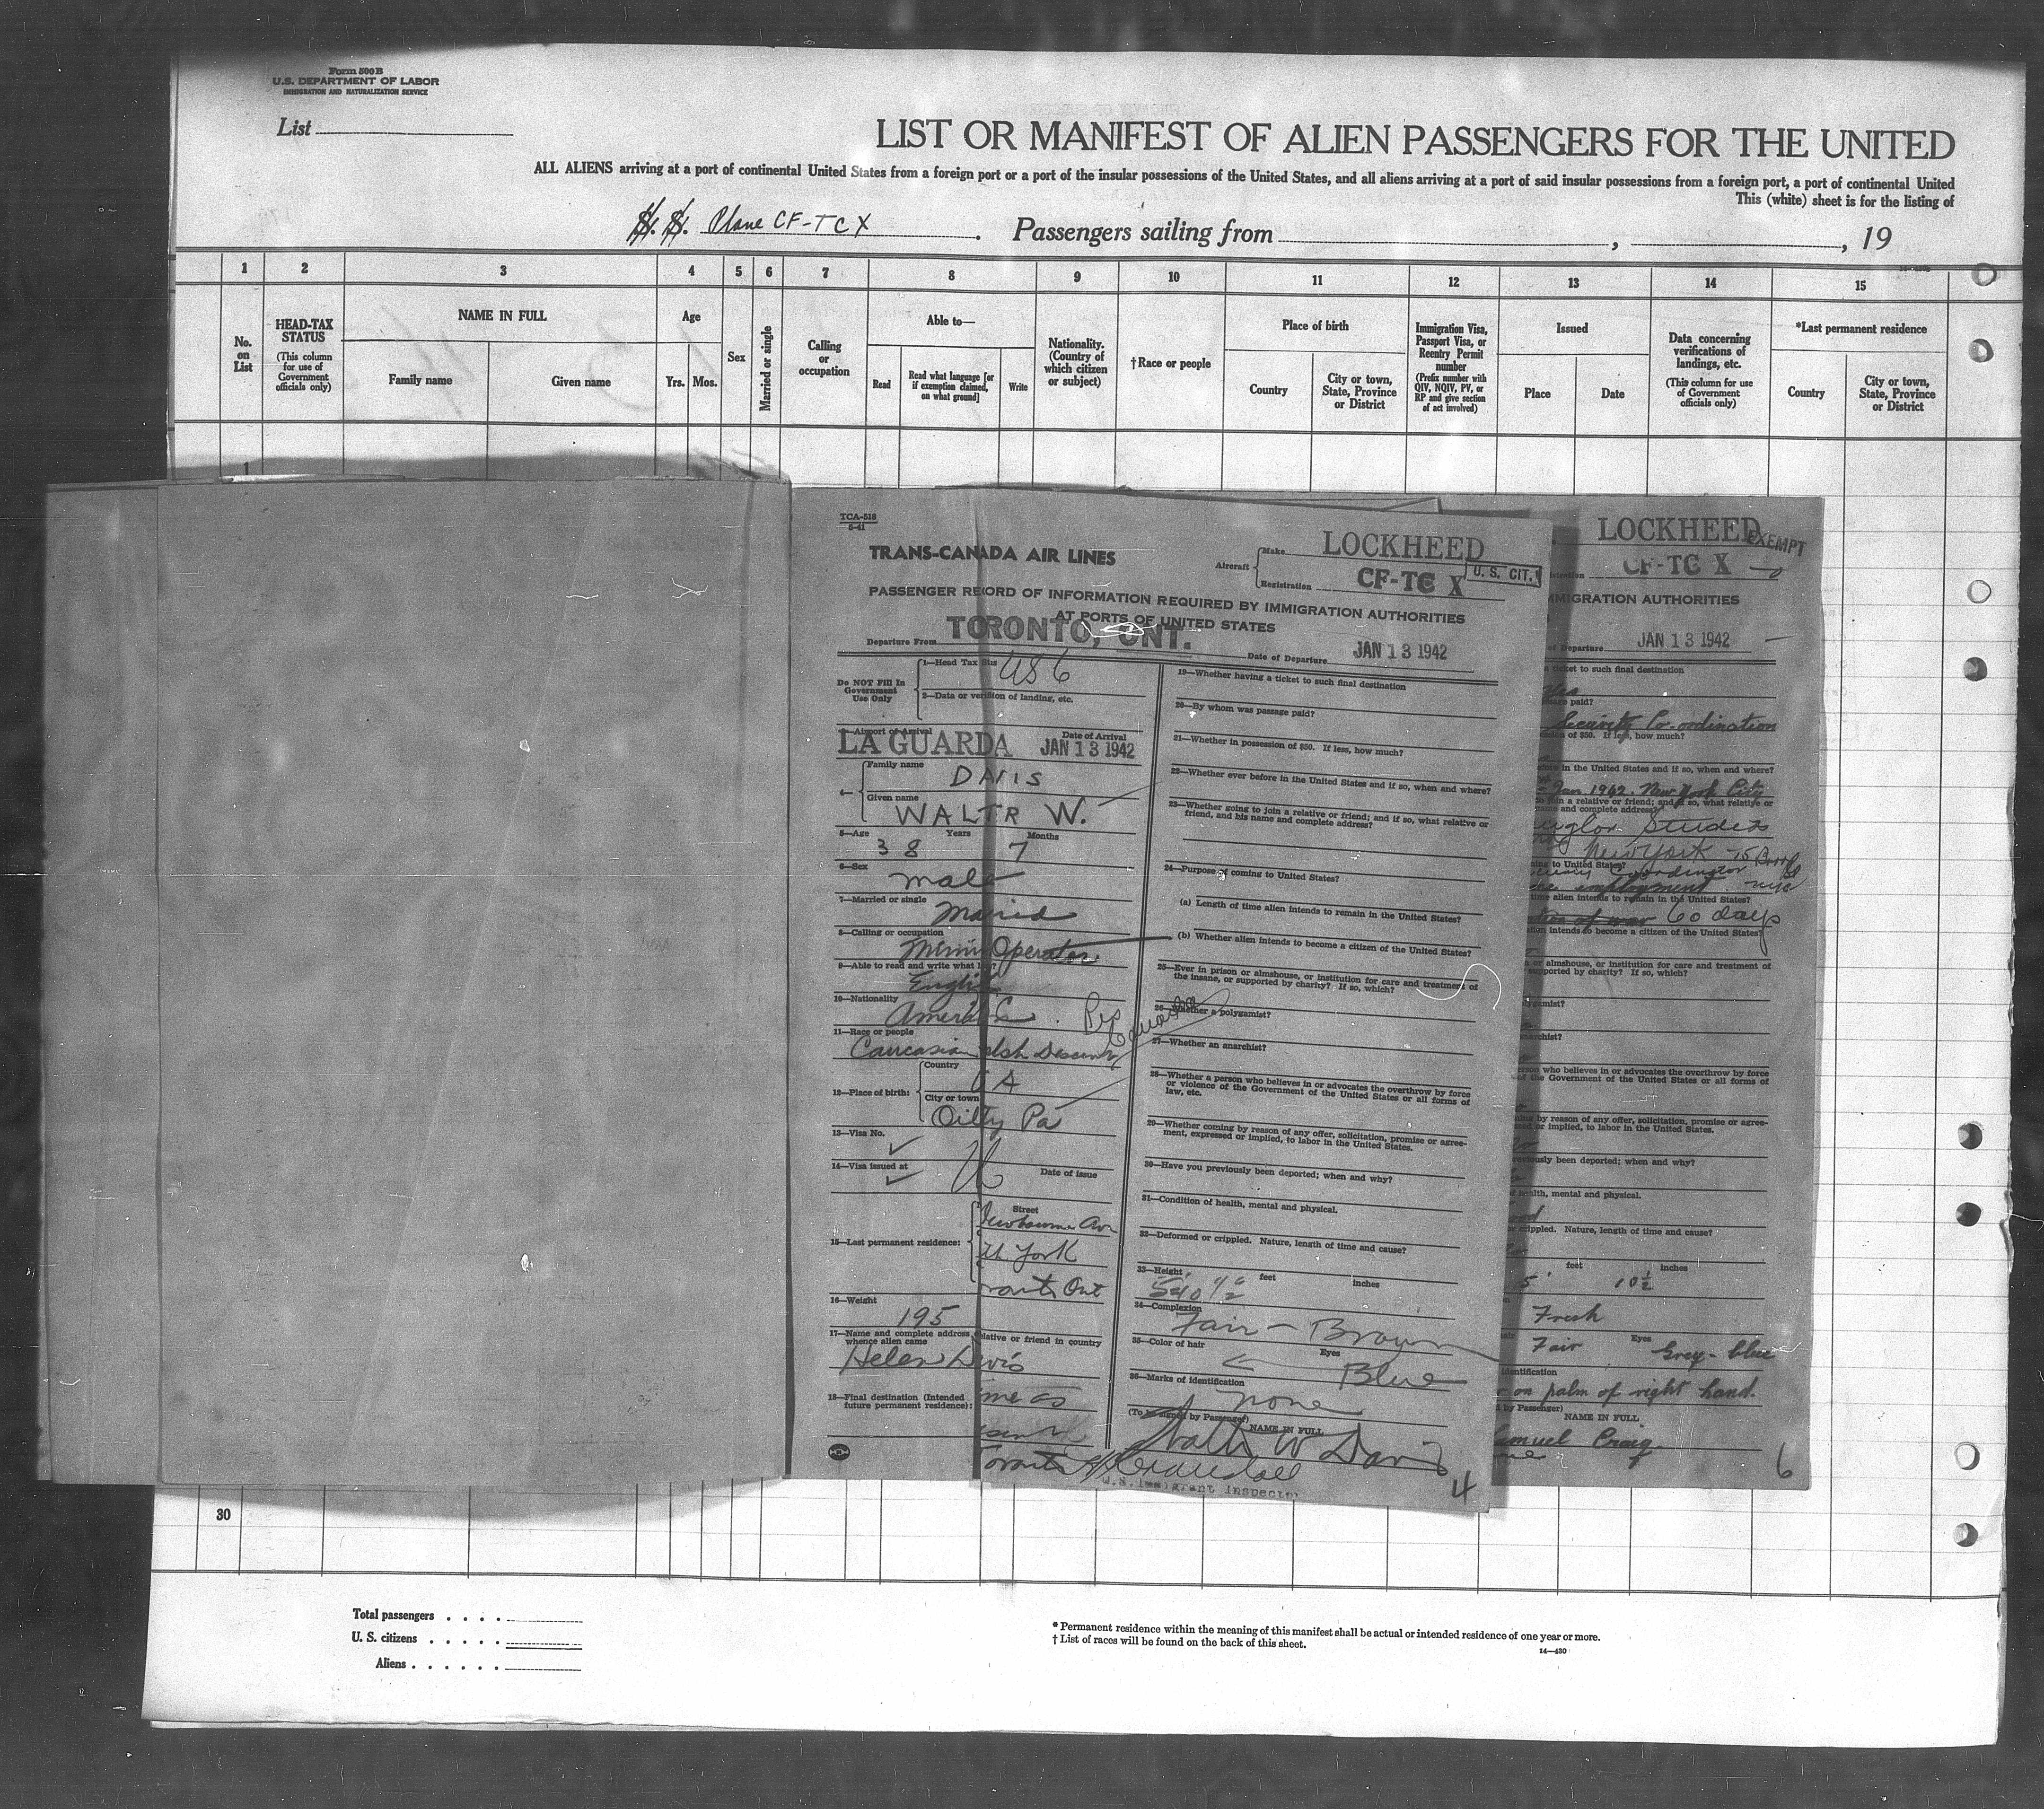 Form 500 B
U.S. DEPARTMENT OF LABOR
IMMIGRATION AND NATURALIZATION SERVICE
List
LIST OR MANIFEST OF ALIEN PASSENGERS FOR THE UNITED
ALL ALIENS arriving at a port of continental United States from a foreign port or a port of the insular possessions of the United States, and all aliens arriving at a port of said insular possessions from a foreign port, a port of continental United
This (white) sheet is for the listing of
S. S. Plane CF-TCX. Passengers sailing from , , 19
1 2 3 4 5 6 7 8 9 10 11 12 13 14 15
No. on List
HEAD-TAX STATUS (This column for use of Government officials only)
NAME IN FULL
Family name Given name
Age
Yrs. Mos.
Sex
Married or single
Calling or occupation
Able to—
Read Read what language [or if exemption claimed, on what ground] Write
Nationality. (Country of which citizen or subject)
†Race or people
Place of birth
Country City or town, State, Province or District
Immigration Visa, Passport Visa, or Reentry Permit number (Prefix number with QIV, NQIV, PV, or RP and give section of act involved)
Issued
Place Date
Data concerning verifications of landings, etc. (This column for use of Government officials only)
*Last permanent residence
Country City or town, State, Province or District
1
TCA-518
5-41
TRANS-CANADA AIR LINES
Aircraft Make LOCKHEED
Registration CF-TC X
U. S. CIT.
PASSENGER RECORD OF INFORMATION REQUIRED BY IMMIGRATION AUTHORITIES
AT PORTS OF UNITED STATES
Departure From TORONTO, ONT. Date of Departure JAN 13 1942
Do NOT Fill In Government Use Only
1—Head Tax Stus USC
2—Data or verition of landing, etc.
3—Airport of Arrival LA GUARDA Date of Arrival JAN 13 1942
4— Family name DAVIS
Given name WALTR W.
5—Age 38 Years 7 Months
6—Sex male
7—Married or single Married
8—Calling or occupation Operator
9—Able to read and write what English
10—Nationality American
11—Race or people Caucasian
12—Place of birth: Country
City or town Pa
13—Visa No.
14—Visa issued at Date of issue
15—Last permanent residence: Street
York
Ont
16—Weight 195
17—Name and complete address relative or friend in country
whence alien came
Helen Davis
18—Final destination (Intended
future permanent residence): me as
19—Whether having a ticket to such final destination
20—By whom was passage paid?
21—Whether in possession of $50. If less, how much?
22—Whether ever before in the United States and if so, when and where?
23—Whether going to join a relative or friend; and if so, what relative or
friend, and his name and complete address?
24—Purpose of coming to United States?
(a) Length of time alien intends to remain in the United States?
(b) Whether alien intends to become a citizen of the United States?
25—Ever in prison or almshouse, or institution for care and treatment of
the insane, or supported by charity? If so, which?
26—Whether a polygamist?
27—Whether an anarchist?
28—Whether a person who believes in or advocates the overthrow by force
or violence of the Government of the United States or all forms of
law, etc.
29—Whether coming by reason of any offer, solicitation, promise or agree-
ment, expressed or implied, to labor in the United States.
30—Have you previously been deported; when and why?
31—Condition of health, mental and physical.
32—Deformed or crippled. Nature, length of time and cause?
33—Height feet inches
34—Complexion Fair - Brown
35—Color of hair Eyes Blue
36—Marks of identification none
(To be signed by Passenger) NAME IN FULL
Walter W Davis
U.S. Immigrant Inspector
4
LOCKHEED
EXEMPT
CF-TC X
IMMIGRATION AUTHORITIES
of Departure JAN 13 1942
a ticket to such final destination
Yes
passage paid?
Security Co-ordination
of $50. If less, how much?
in the United States and if so, when and where?
- Jan. 1942. New York City
to join a relative or friend; and if so, what relative or
name and complete address?
Studios
New York
coming to United States?
Coordinator
employment
time alien intends to remain in the United States?
of war 60 days
alien intends to become a citizen of the United States?
or almshouse, or institution for care and treatment of
supported by charity? If so, which?
polygamist?
anarchist?
person who believes in or advocates the overthrow by force
of the Government of the United States or all forms of
by reason of any offer, solicitation, promise or agree-
or implied, to labor in the United States.
previously been deported; when and why?
of health, mental and physical.
crippled. Nature, length of time and cause?
5' feet 10½ inches
Fresh
Fair Eyes Grey-blue
identification
on palm of right hand.
by Passenger) NAME IN FULL
Samuel Craig
6
30
Total passengers
U. S. citizens
Aliens
* Permanent residence within the meaning of this manifest shall be actual or intended residence of one year or more.
† List of races will be found on the back of this sheet.
14—430